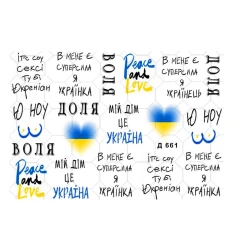 ітс соу
сексі
ту бі
Юкреніан
В МЕНЕ Є
СУПЕРСИЛА
Я
УКРАЇНКА
ВОЛЯ
Peace
and
Love
В МЕНЕ Є
СУПЕРСИЛА
Я
УКРАЇНЕЦЬ
ДОЛЯ
Ю НОУ
ДОЛЯ
МІЙ ДІМ
ЦЕ
УКРАЇНА
Ю НОУ
ВОЛЯ
Д 661
Peace
and
Love
МІЙ ДІМ
ЦЕ
УКРАЇНА
В МЕНЕ Є
СУПЕРСИЛА
Я
УКРАЇНКА
ітс соу
сексі
ту бі
Юкреніан
В МЕНЕ Є
СУПЕРСИЛА
Я
УКРАЇНКА